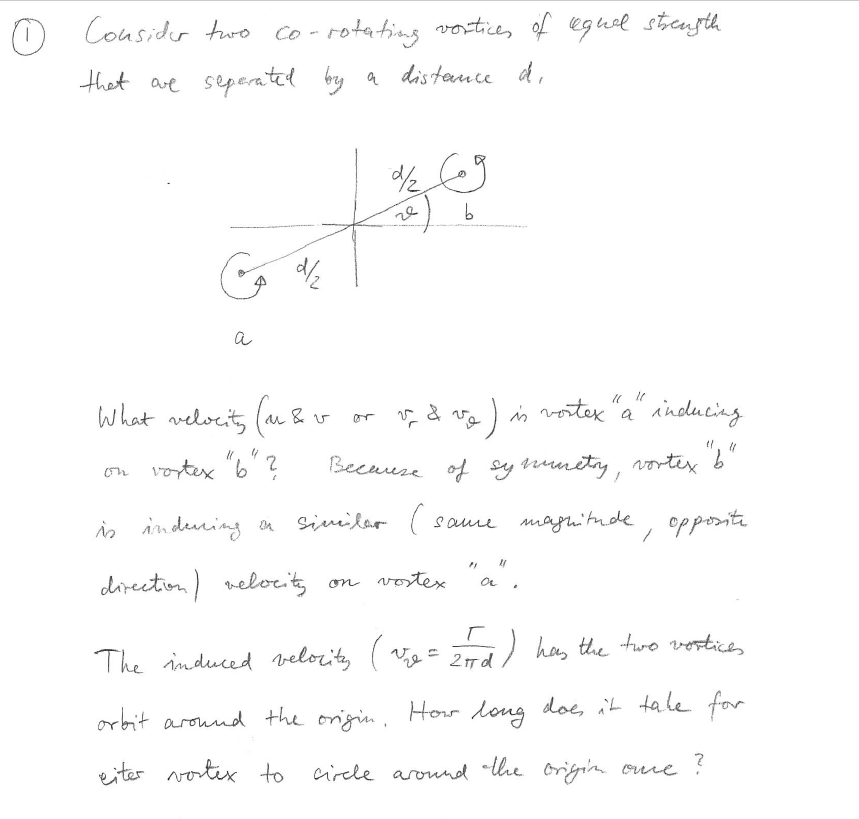 ① Consider two co-rotating vortices of equal strength
that are seperated by a distance d.
d/2
ϑ
b
d/2
a
What velocity (u & v or v_r & v_ϑ) is vortex "a" inducing
on vortex "b"? Because of symmetry, vortex "b"
is inducing a similar (same magnitude, opposite
direction) velocity on vortex "a".
The induced velocity (v_ϑ = Γ/2πd) has the two vortices
orbit around the origin. How long does it take for
eiter vortex to circle around the origin once?